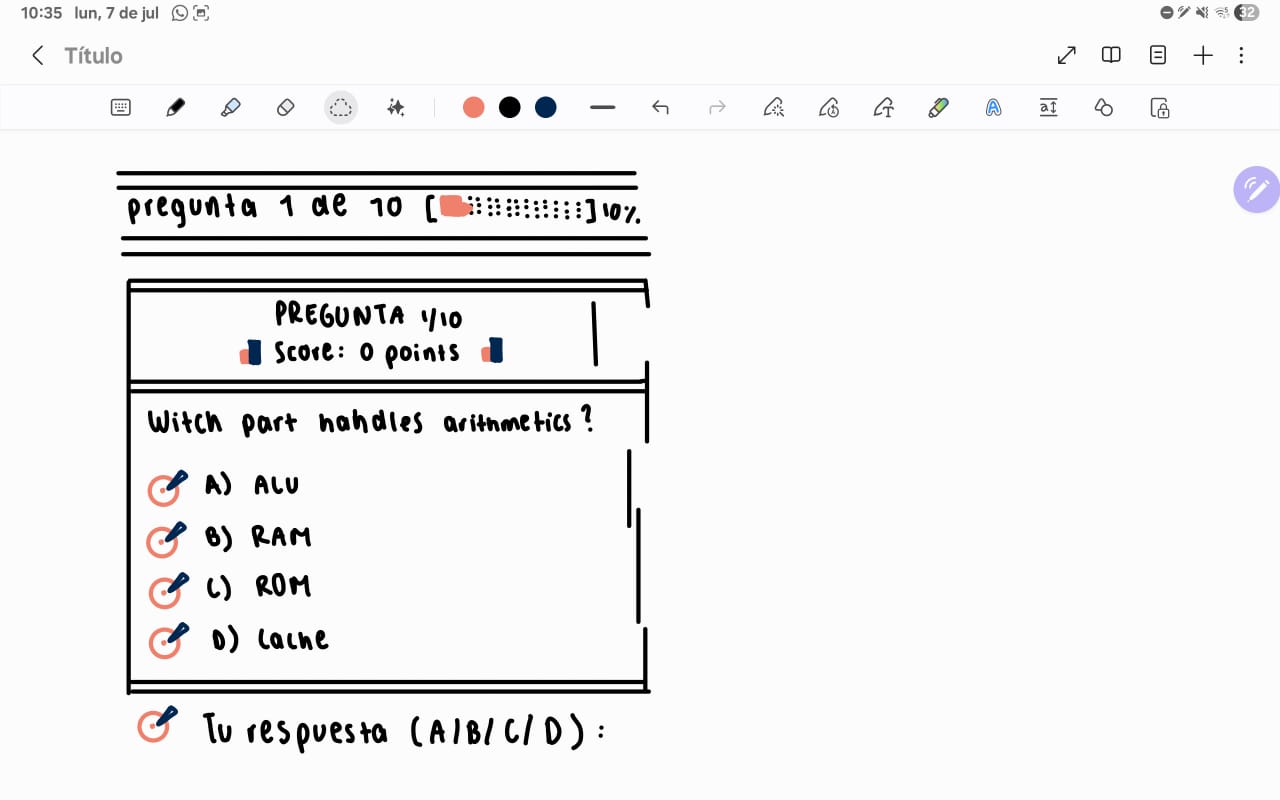 10:35 lun, 7 de jul 32
Título
pregunta 1 de 10 [ ] 10%
PREGUNTA 1/10
Score: 0 points
Witch part hahdles arithmetics?
A) ALU
B) RAM
C) ROM
D) Cache
Tu respuesta (A/B/C/D):